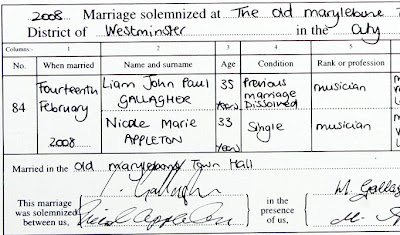 2008 Marriage solemnized at The Old marylebone T
District of Westminster in the City
Columns:- 1 2 3 4 5
No. When married Name and surname Age Condition Rank or profession
84 Fourteenth February 2008 Liam John Paul GALLAGHER 35 years Previous marriage Dissolved musician
Nicole Marie APPLETON 33 years Single musician
Married in the Old marylebone Town Hall
This marriage was solemnized between us, in the presence of us,
L. Gallagher
Nicole Appleton
M. Gallag